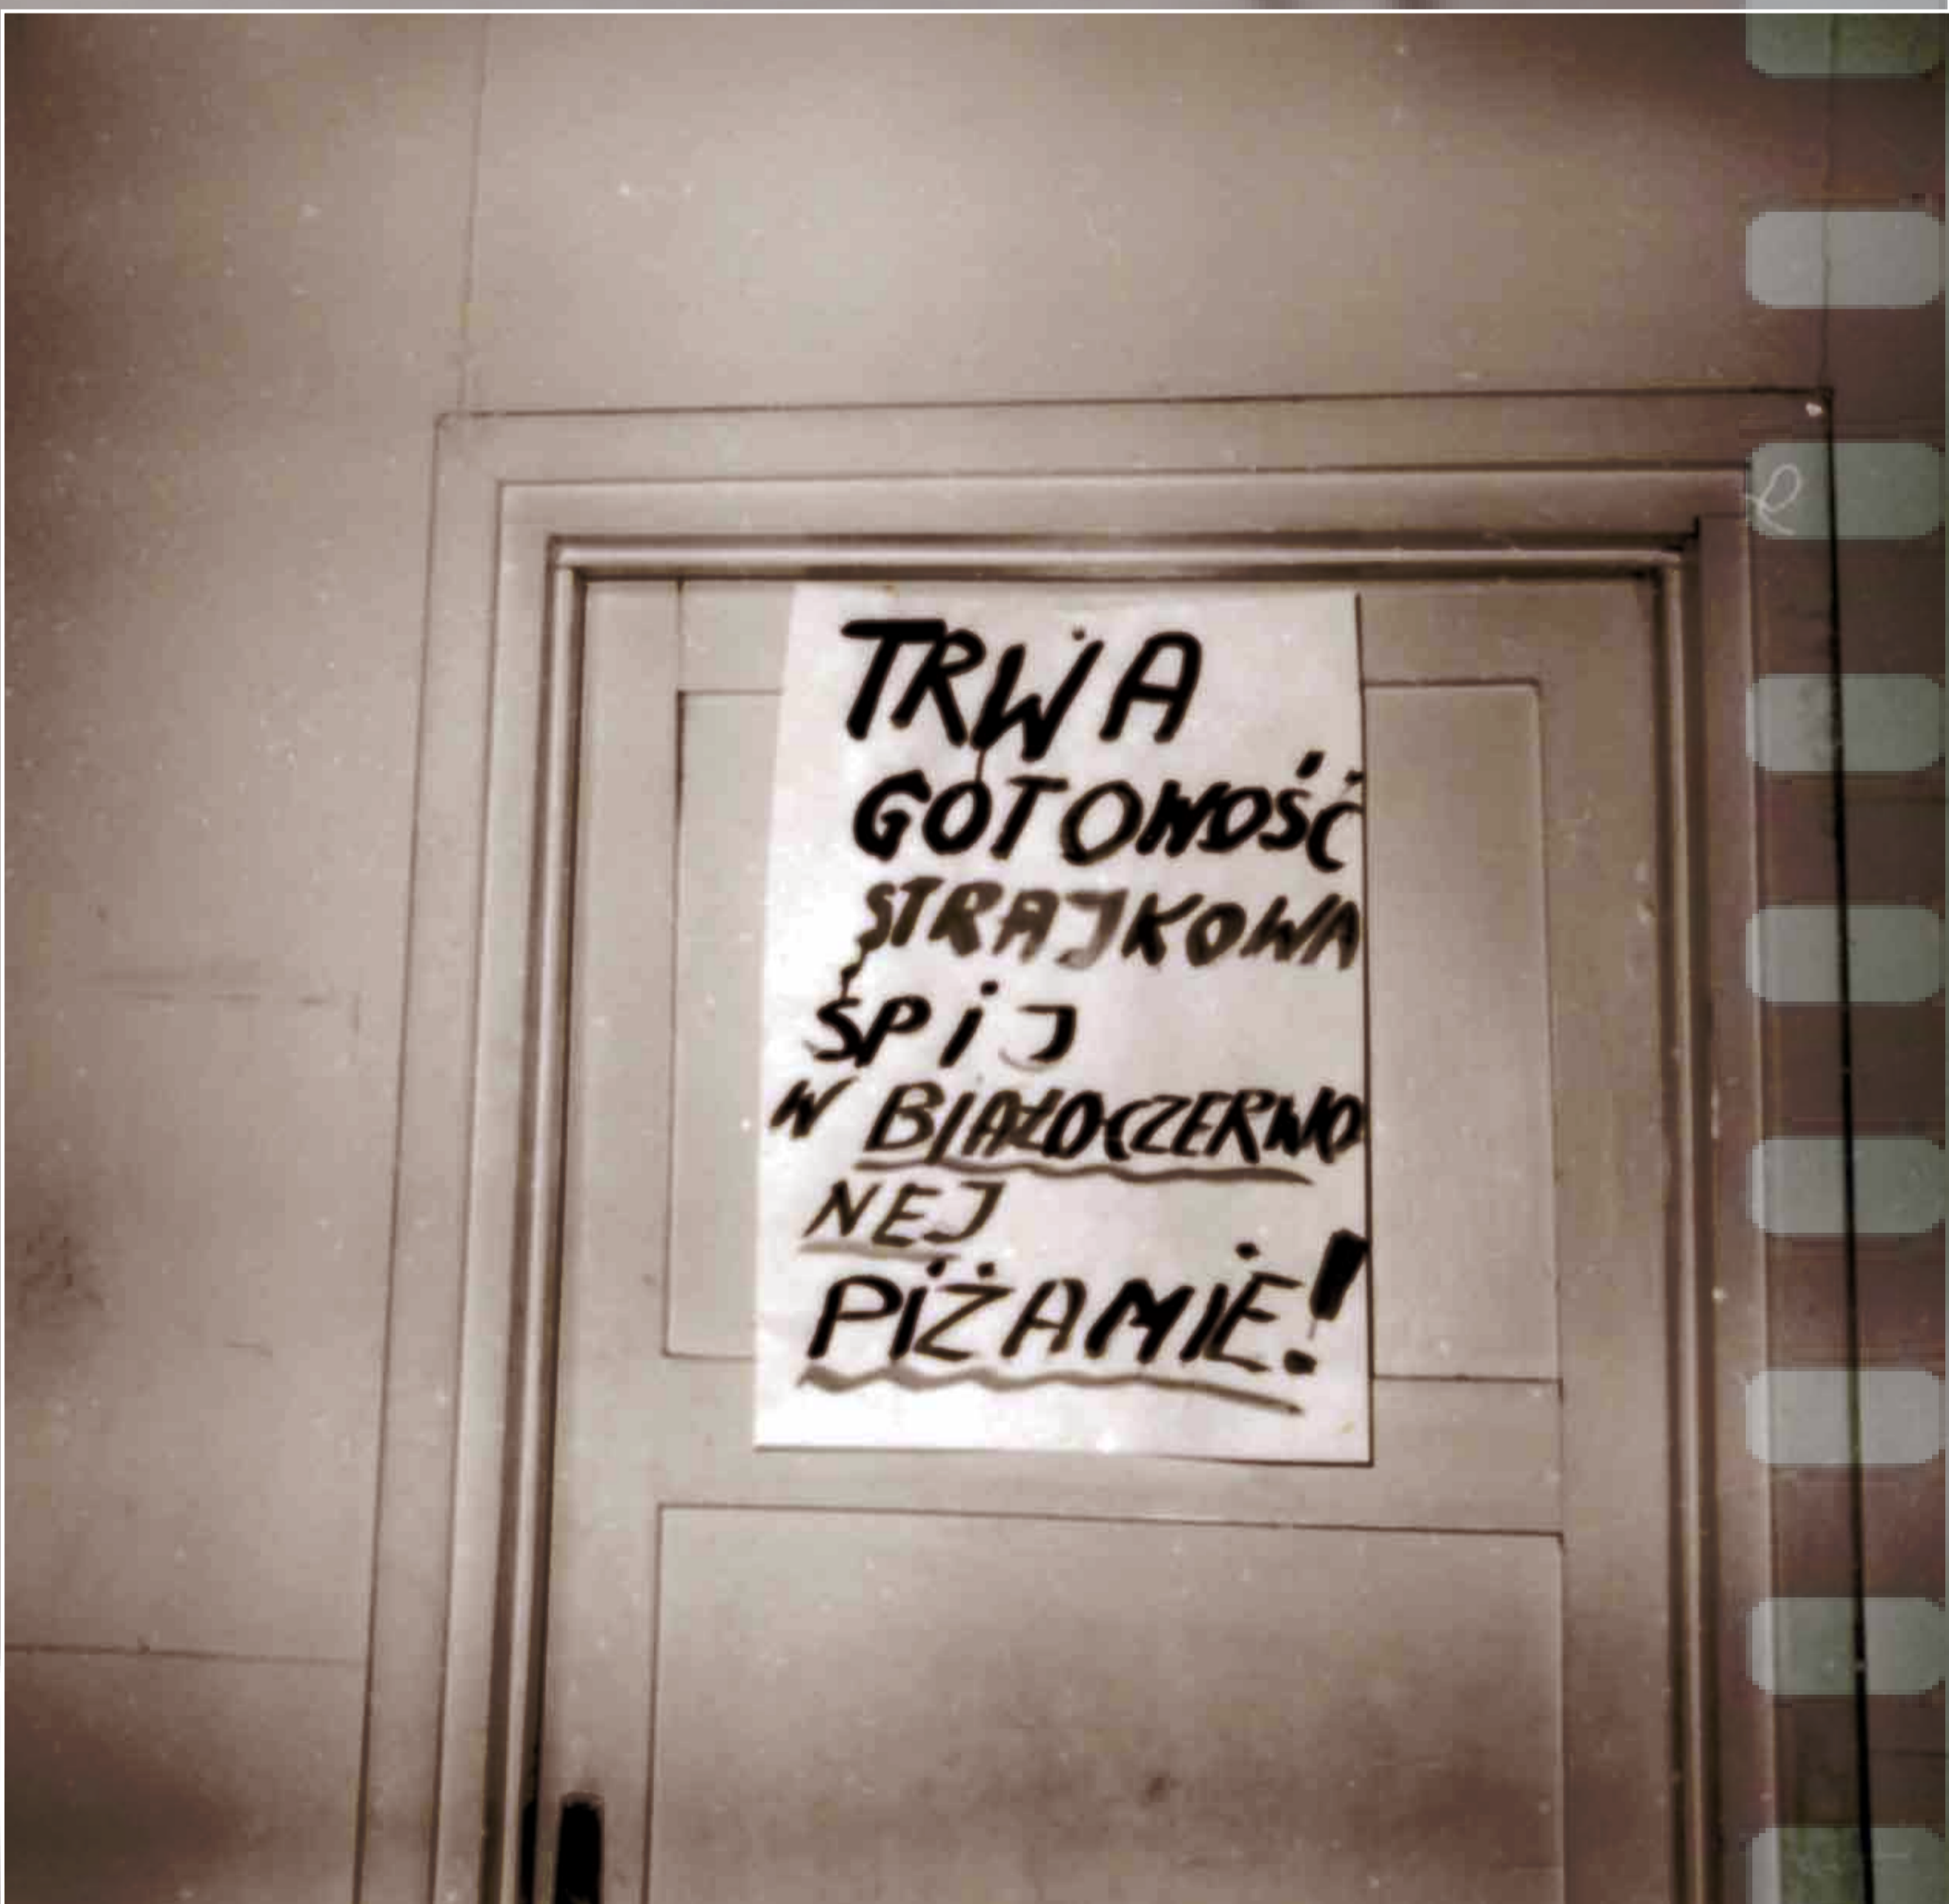 TRWA
GOTOWOŚĆ
STRAJKOWA
ŚPIJ
W BIAŁOCZERWO
NEJ
PIŻAMIE!